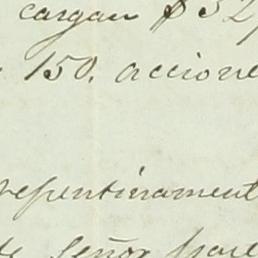 cargan $ 52
150. accione
repentinament
Señor